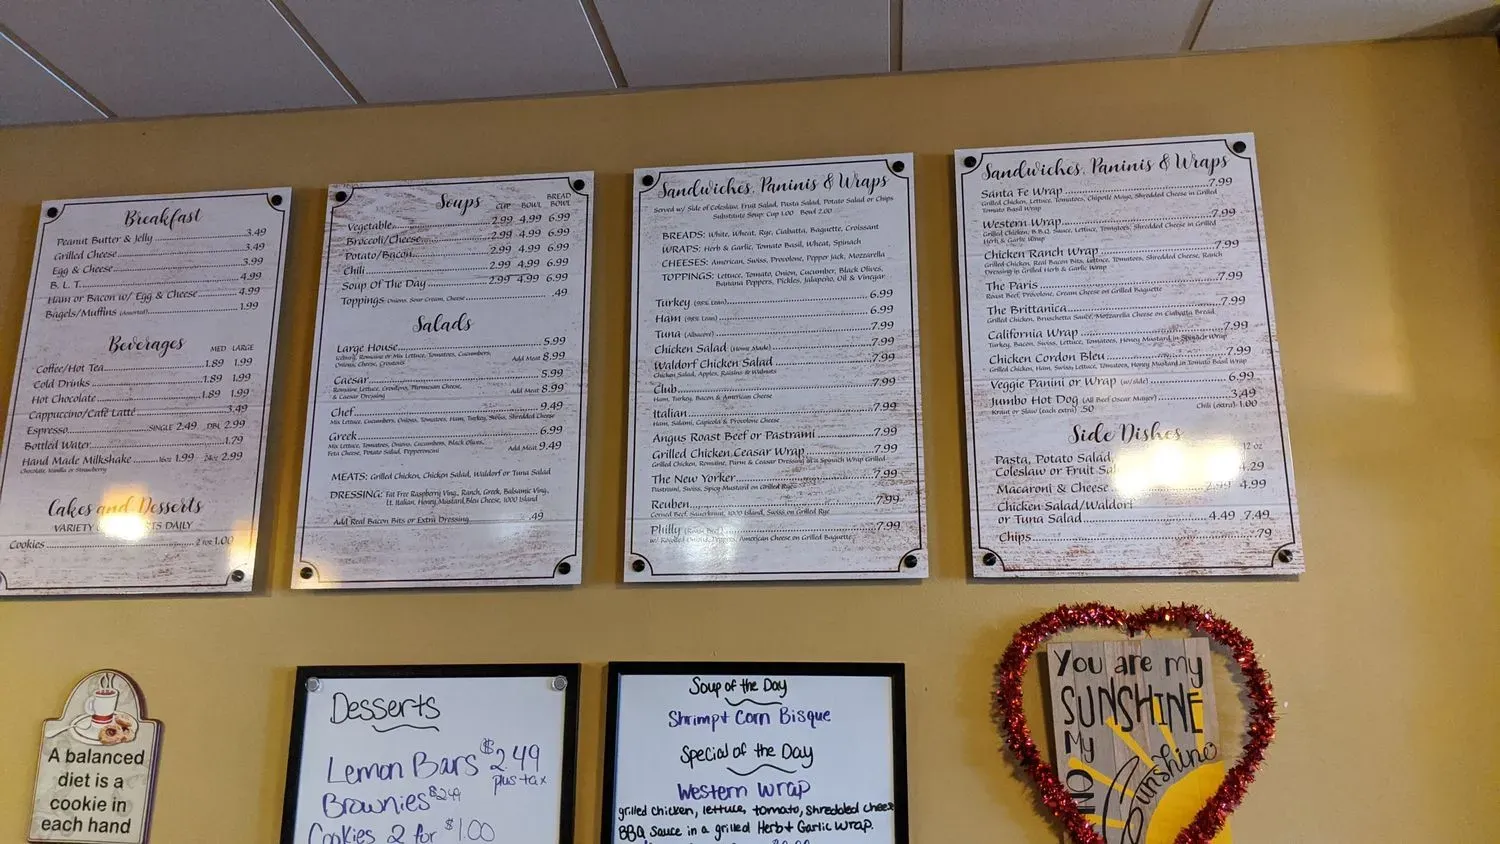 Breakfast
Peanut Butter & Jelly 3.49
Grilled Cheese 3.49
Egg & Cheese 3.99
B. L. T. 4.99
Ham or Bacon w/ Egg & Cheese 4.99
Bagels/Muffins (Assorted) 1.99
Beverages MED LARGE
Coffee/Hot Tea 1.89 1.99
Cold Drinks 1.89 1.99
Hot Chocolate 1.89 1.99
Cappuccino/Café Latté 3.49
Espresso SINGLE 2.49 DBL 2.99
Bottled Water 1.79
Hand Made Milkshake 16oz 1.99 24oz 2.99
Chocolate, Vanilla or Strawberry
Cakes and Desserts
VARIETY DAILY
Cookies 2 for 1.00
Soups CUP BOWL BREAD BOWL
Vegetable 2.99 4.99 6.99
Broccoli/Cheese 2.99 4.99 6.99
Potato/Bacon 2.99 4.99 6.99
Chili 2.99 4.99 6.99
Soup Of The Day 2.99 4.99 6.99
Toppings Onions, Sour Cream, Cheese .49
Salads
Large House 5.99
Iceburg, Romaine or Mix Lettuce, Tomatoes, Cucumbers,
Onions, Cheese, Croutons Add Meat 8.99
Caesar 5.99
Romaine Lettuce, Croutons, Parmesan Cheese,
& Caesar Dressing Add Meat 8.99
Chef 9.49
Mix Lettuce, Cucumbers, Onions, Tomatoes, Ham, Turkey, Swiss, Shredded Cheese
Greek 6.99
Mix Lettuce, Tomatoes, Onions, Cucumbers, Black Olives,
Feta Cheese, Potato Salad, Pepperoncini Add Meat 9.49
MEATS: Grilled Chicken, Chicken Salad, Waldorf or Tuna Salad
DRESSING: Fat Free Raspberry Ving., Ranch, Greek, Balsamic Ving,
Lt. Italian, Honey Mustard, Bleu Cheese, 1000 Island
Add Real Bacon Bits or Extra Dressing .49
Sandwiches, Paninis & Wraps
Served w/ Side of Coleslaw, Fruit Salad, Pasta Salad, Potato Salad or Chips
Substitute Soup: Cup 1.00 Bowl 2.00
BREADS: White, Wheat, Rye, Ciabatta, Baguette, Croissant
WRAPS: Herb & Garlic, Tomato Basil, Wheat, Spinach
CHEESES: American, Swiss, Provolone, Pepper Jack, Mozzarella
TOPPINGS: Lettuce, Tomato, Onion, Cucumber, Black Olives,
Banana Peppers, Pickles, Jalapeño, Oil & Vinegar
Turkey (98% Lean) 6.99
Ham (98% Lean) 6.99
Tuna (Albacore) 7.99
Chicken Salad (Home Made) 7.99
Waldorf Chicken Salad 7.99
Chicken Salad, Apples, Raisins & Walnuts
Club 7.99
Ham, Turkey, Bacon & American Cheese
Italian 7.99
Ham, Salami, Capicola & Provolone Cheese
Angus Roast Beef or Pastrami 7.99
Grilled Chicken Ceasar Wrap 7.99
Grilled Chicken, Romaine, Parm & Ceasar Dressing in a Spinach Wrap Grilled
The New Yorker 7.99
Pastrami, Swiss, Spicy Mustard on Grilled Rye
Reuben 7.99
Corned Beef, Sauerkraut, 1000 Island, Swiss on Grilled Rye
Philly (Roast Beef) 7.99
w/ Roasted Onions, Peppers, American Cheese on Grilled Baguette
Sandwiches, Paninis & Wraps
Santa Fe Wrap 7.99
Grilled Chicken, Lettuce, Tomatoes, Chipotle Mayo, Shredded Cheese in Grilled
Tomato Basil Wrap
Western Wrap 7.99
Grilled Chicken, B.B.Q. Sauce, Lettuce, Tomatoes, Shredded Cheese in Grilled
Herb & Garlic Wrap
Chicken Ranch Wrap 7.99
Grilled Chicken, Real Bacon Bits, Lettuce, Tomatoes, Shredded Cheese, Ranch
Dressing in Grilled Herb & Garlic Wrap
The Paris 7.99
Roast Beef, Provolone, Cream Cheese on Grilled Baguette
The Brittanica 7.99
Grilled Chicken, Bruschetta Sauce, Mozzarella Cheese on Ciabatta Bread
California Wrap 7.99
Turkey, Bacon, Swiss, Lettuce, Tomatoes, Honey Mustard in Spinach Wrap
Chicken Cordon Bleu 7.99
Grilled Chicken, Ham, Swiss, Lettuce, Tomatoes, Honey Mustard in Tomato Basil Wrap
Veggie Panini or Wrap (w/side) 6.99
Jumbo Hot Dog (All Beef Oscar Mayer) 3.49
Kraut or Slaw (each extra) .50 Chili (extra) 1.00
Side Dishes
12 oz
Pasta, Potato Salad,
Coleslaw or Fruit 4.29
Macaroni & Cheese 2.99 4.99
Chicken Salad/Waldorf
or Tuna Salad 4.49 7.49
Chips .79
A balanced
diet is a
cookie in
each hand
Desserts
Lemon Bars $2.49
plus tax
Brownies $2.49
Cookies 2 for $1.00
Soup of the Day
Shrimp & Corn Bisque
Special of the Day
Western Wrap
grilled chicken, lettuce, tomato, shredded cheese
BBQ Sauce in a grilled Herb & Garlic Wrap.
You are my
SUNSHINE
My
Sunshine